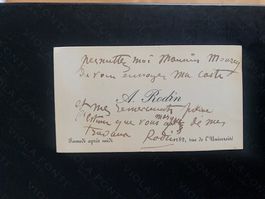 permettez moi Monsieur Mourey
de vous envoyer ma carte
A. Rodin
et mes remerciements pour
que vous de mes
travaux Rodin
Samedi après midi
182, rue de l'Université